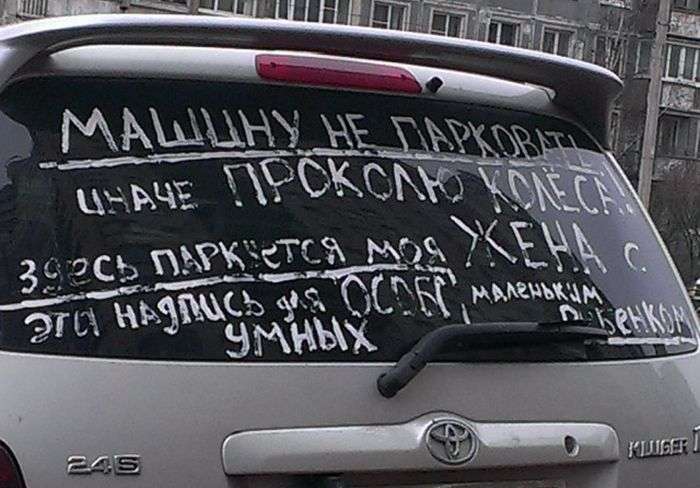 МАШИНУ НЕ ПАРКОВАТЬ
ИНАЧЕ ПРОКОЛЮ КОЛЁСА!
ЗДЕСЬ ПАРКУЕТСЯ МОЯ ЖЕНА С
МАЛЕНЬКИМ
РЕБЕНКОМ
ЭТА НАДПИСЬ ДЛЯ ОСОБ
УМНЫХ
2.4 S
KLUGER